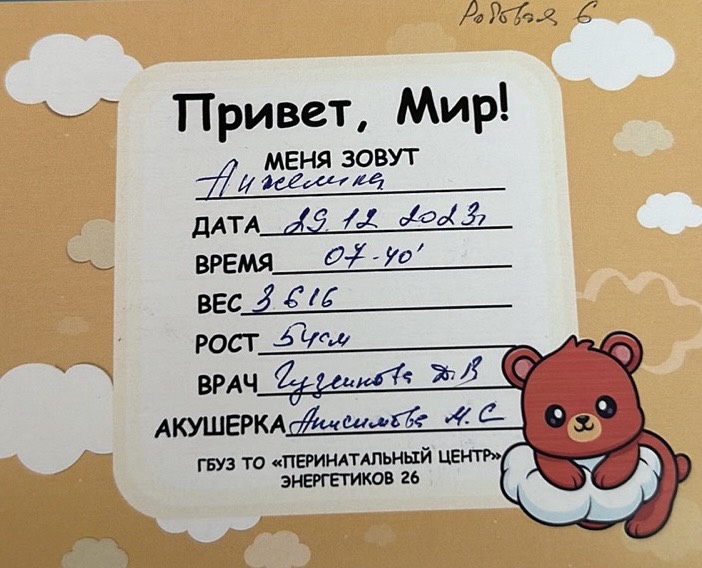 Родовая 6
Привет, Мир!
МЕНЯ ЗОВУТ
Анжелина
ДАТА 29.12 2023г
ВРЕМЯ 07-40'
ВЕС 3.616
РОСТ 54см
ВРАЧ Гузеинова Д.В
АКУШЕРКА Анисимова М.С
ГБУЗ ТО «ПЕРИНАТАЛЬНЫЙ ЦЕНТР»
ЭНЕРГЕТИКОВ 26